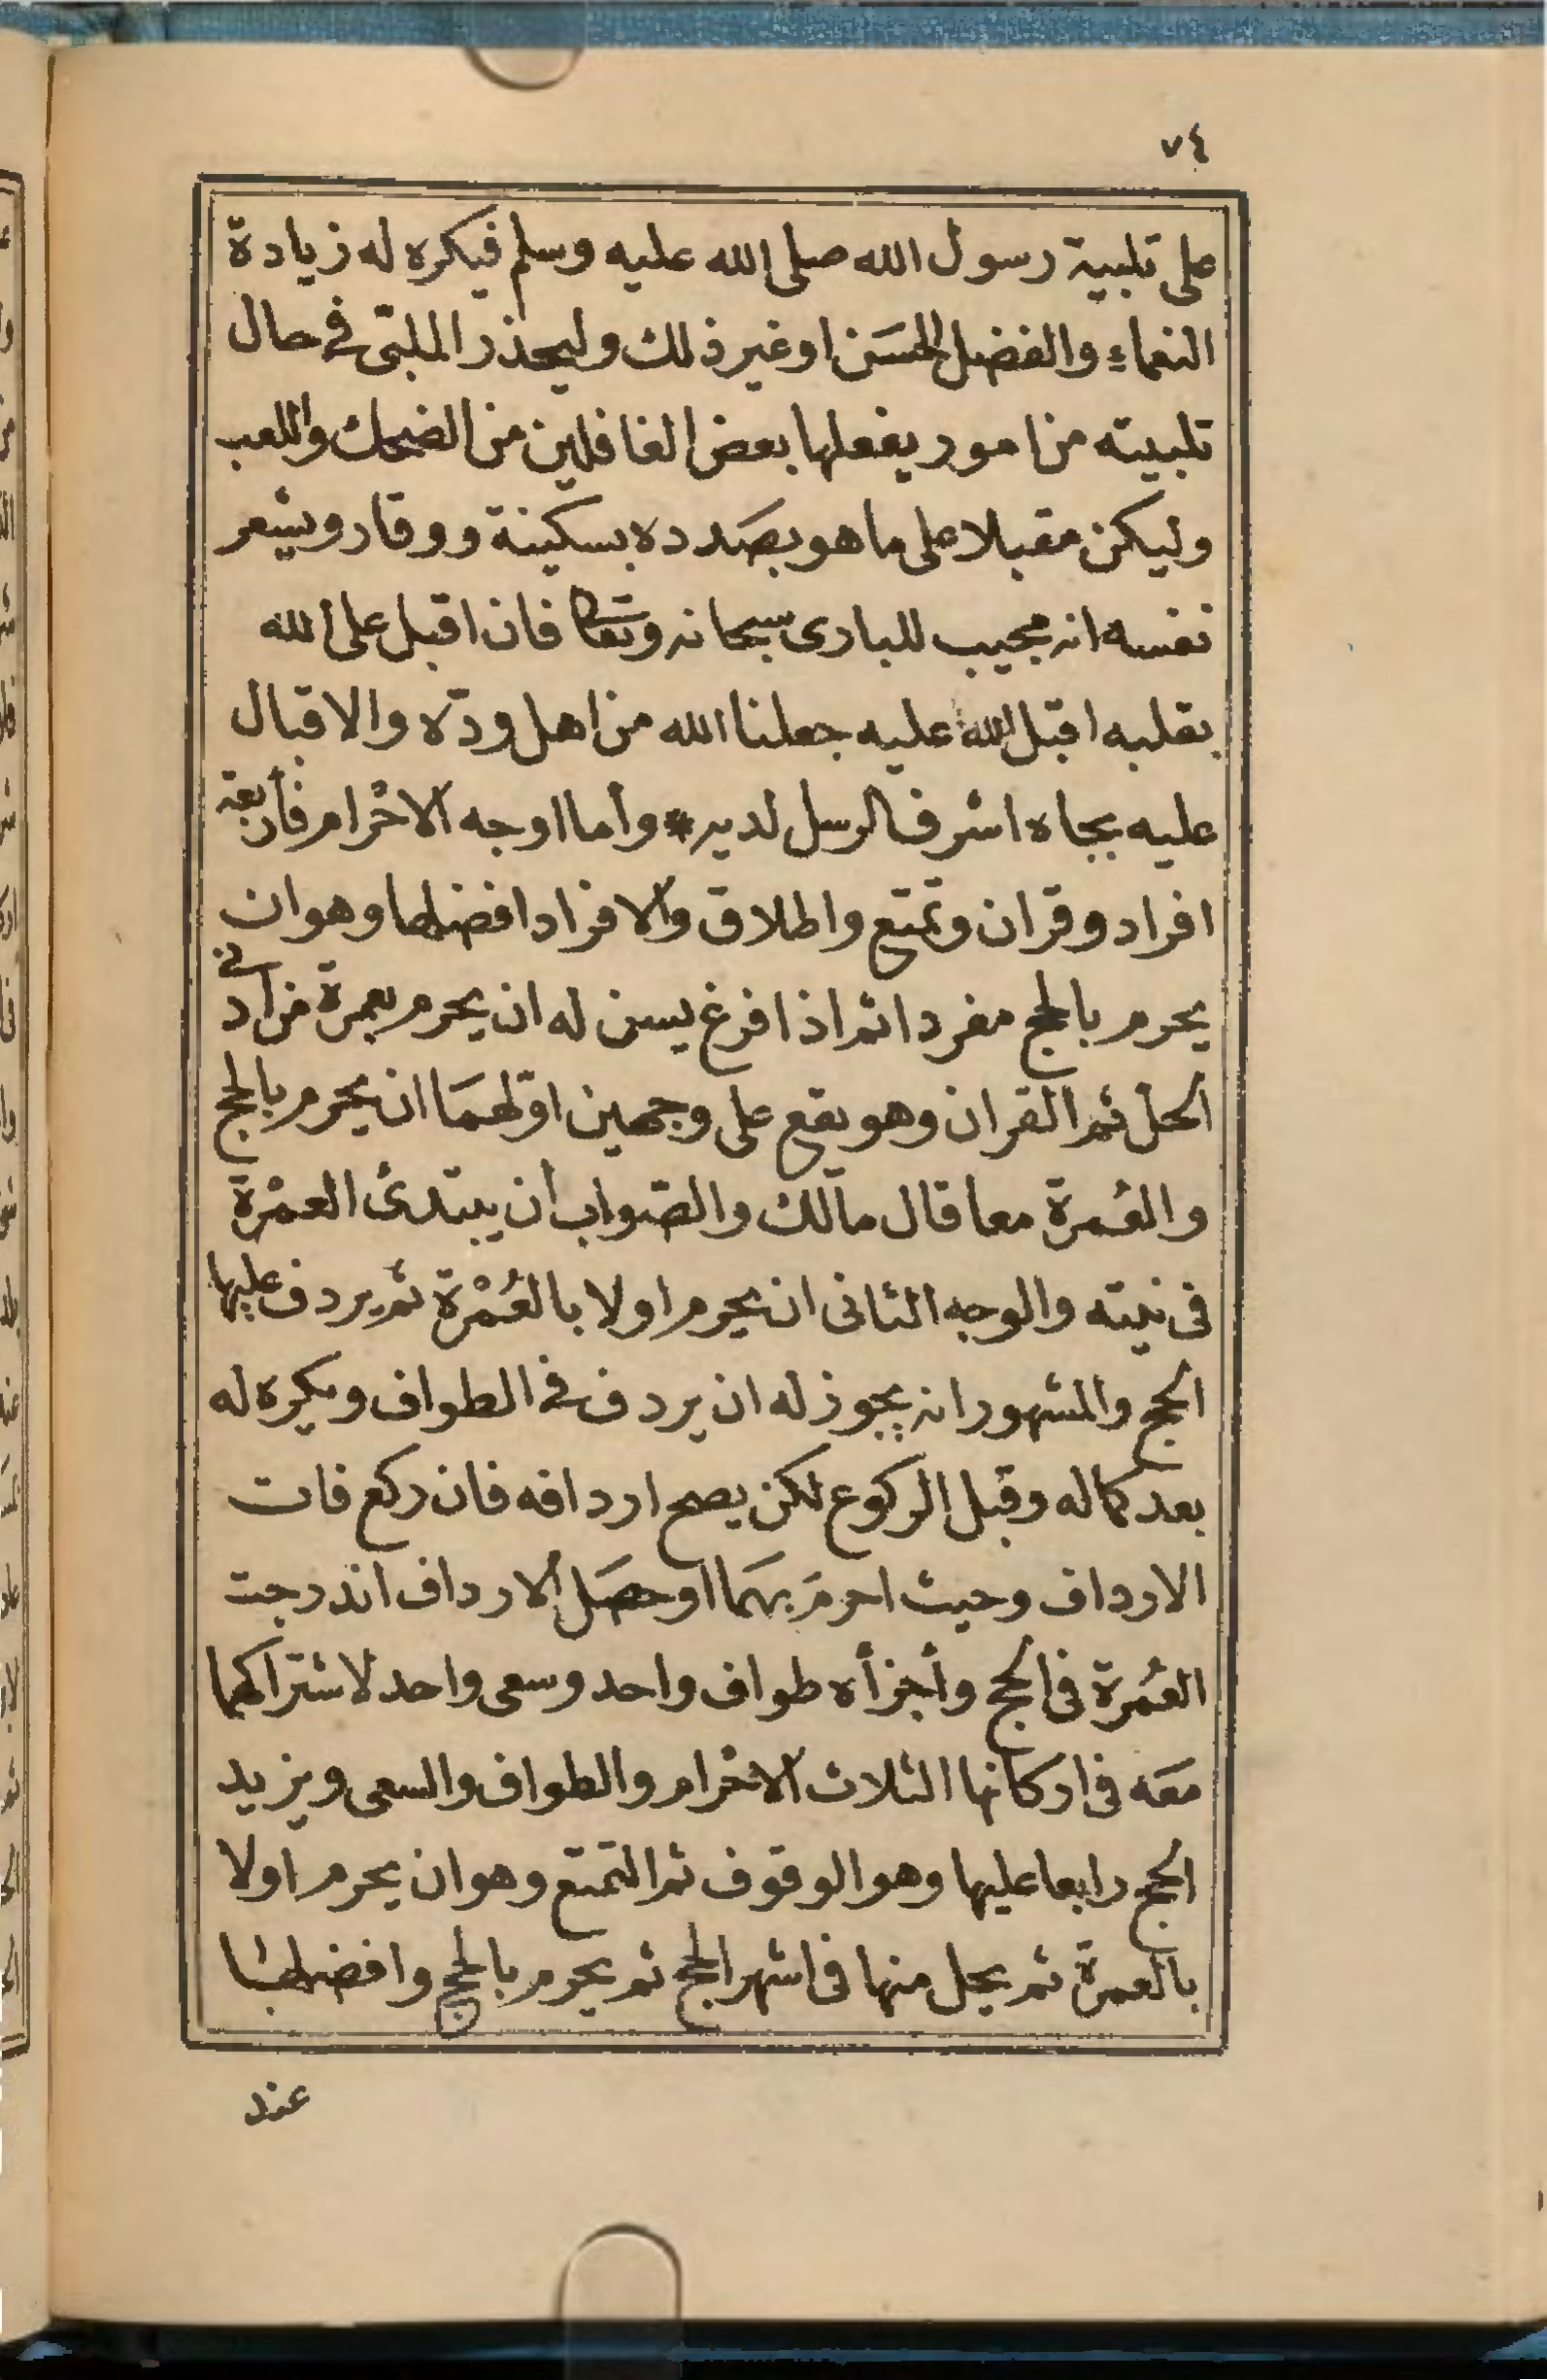 ٧٤
على تلبية رسول الله صلى الله عليه وسلم فيكره له زيادة
النعماء والفضل الحسن او غير ذلك وليحذر الملبّى فى حال
تلبيته من امور يفعلها بعض الغافلين من الضحك واللعب
وليكن مقبلا على ما هو بصَدده بسكينة ووقار ويشعر
نفسه انه مجيب للبارى سبحانه وتعالى فان اقبل على الله
بقلبه اقبل الله عليه جعلنا الله من اهل ودّه والاقبال
عليه بجاه اشرف الرسل لديه * وأما اوجه الاحْرام فأربعة
افراد وقران وتمتع واطلاق والافراد افضلها وهو ان
يحرم بالحج مفردا ثم اذا فرغ يسن له ان يحرم بعمرة من ادنى
الحل ثم القران وهو يقع على وجهين اوّلهمَا ان يحرم بالحج
والعُمرة معا قال مالك والصّواب أن يبتدئ العمْرة
فى نيته والوجه الثانى ان يحرم اولا بالعُمْرة ثم يردف عليها
الحج والمشهور انه يجوز له ان يردف فى الطواف ويكره له
بعد كماله وقبل الركوع لكن يصح اردافه فان ركع فات
الارداف وحيث احرمَ بهمَا او حصَل الارداف اندرجت
العُمرة فى الحج وأجزأه طواف واحد وسعى واحد لاشتراكهما
معَه فى اركانها الثلاث الاحْرام والطواف والسعى ويزيد
الحج رابعا عليها وهو الوقوف ثم التمتع وهو ان يحرم اولا
بالعمرة ثم يحل منها فى اشهر الحج ثم يحرم بالحج وافضلها
عند